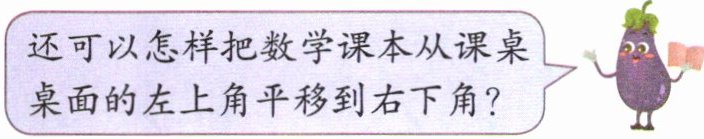 还可以怎样把数学课本从课桌
桌面的左上角平移到右下角？